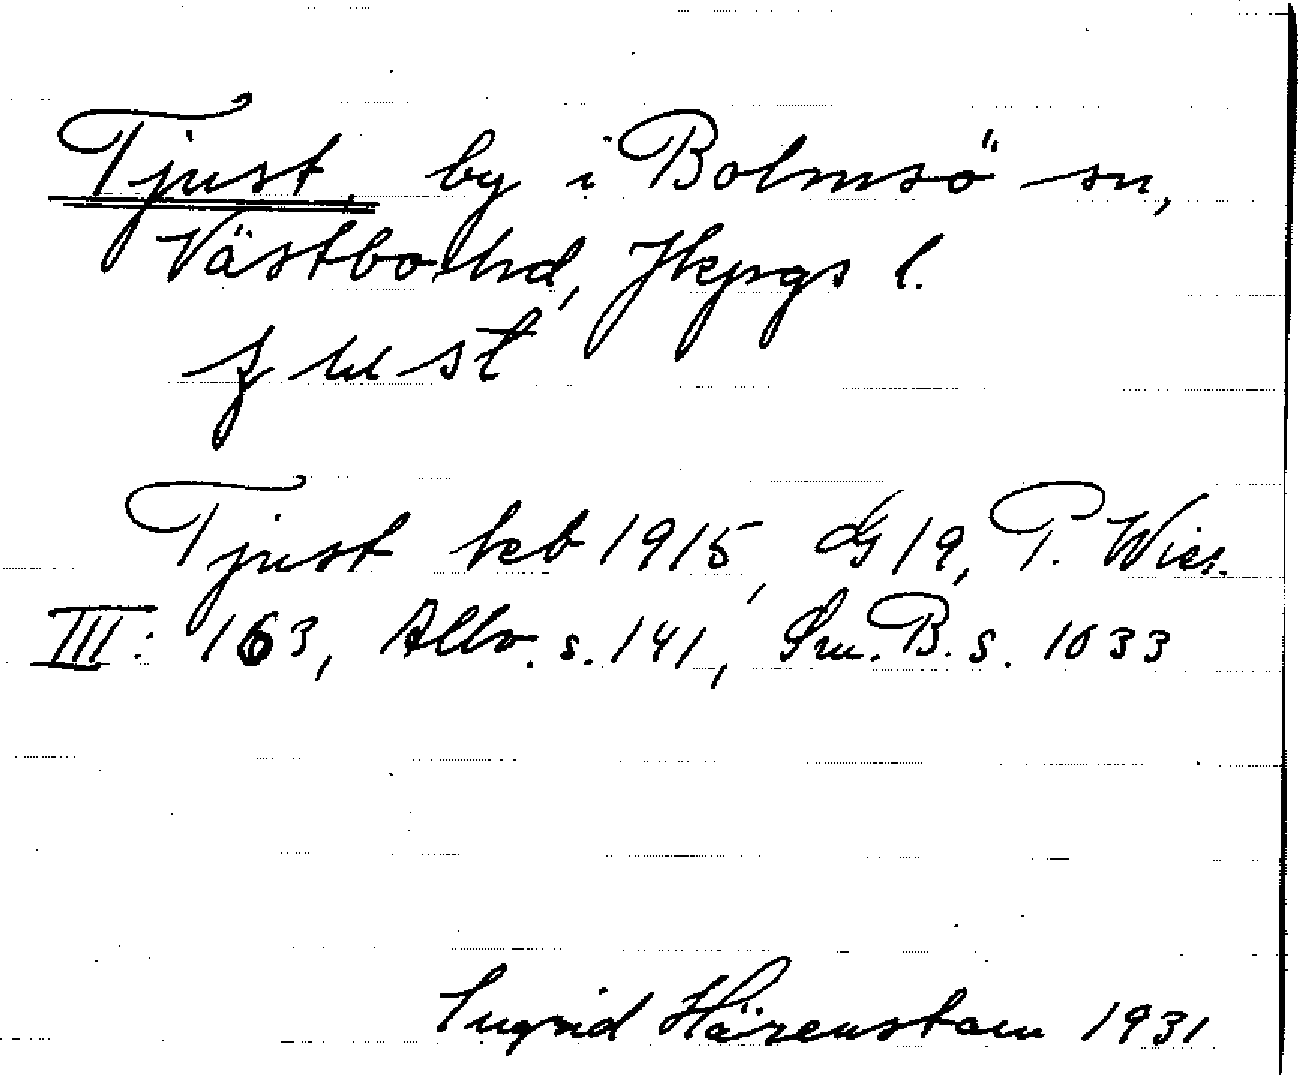 Tjust, by i Bolmsö sn,
Västbo hd, Jkpgs l.
Tjust keb 1915, G 19, P. Wies.
III: 163, Allv. s. 141, Sm. B. s. 1033
Ingrid Härenstam 1931